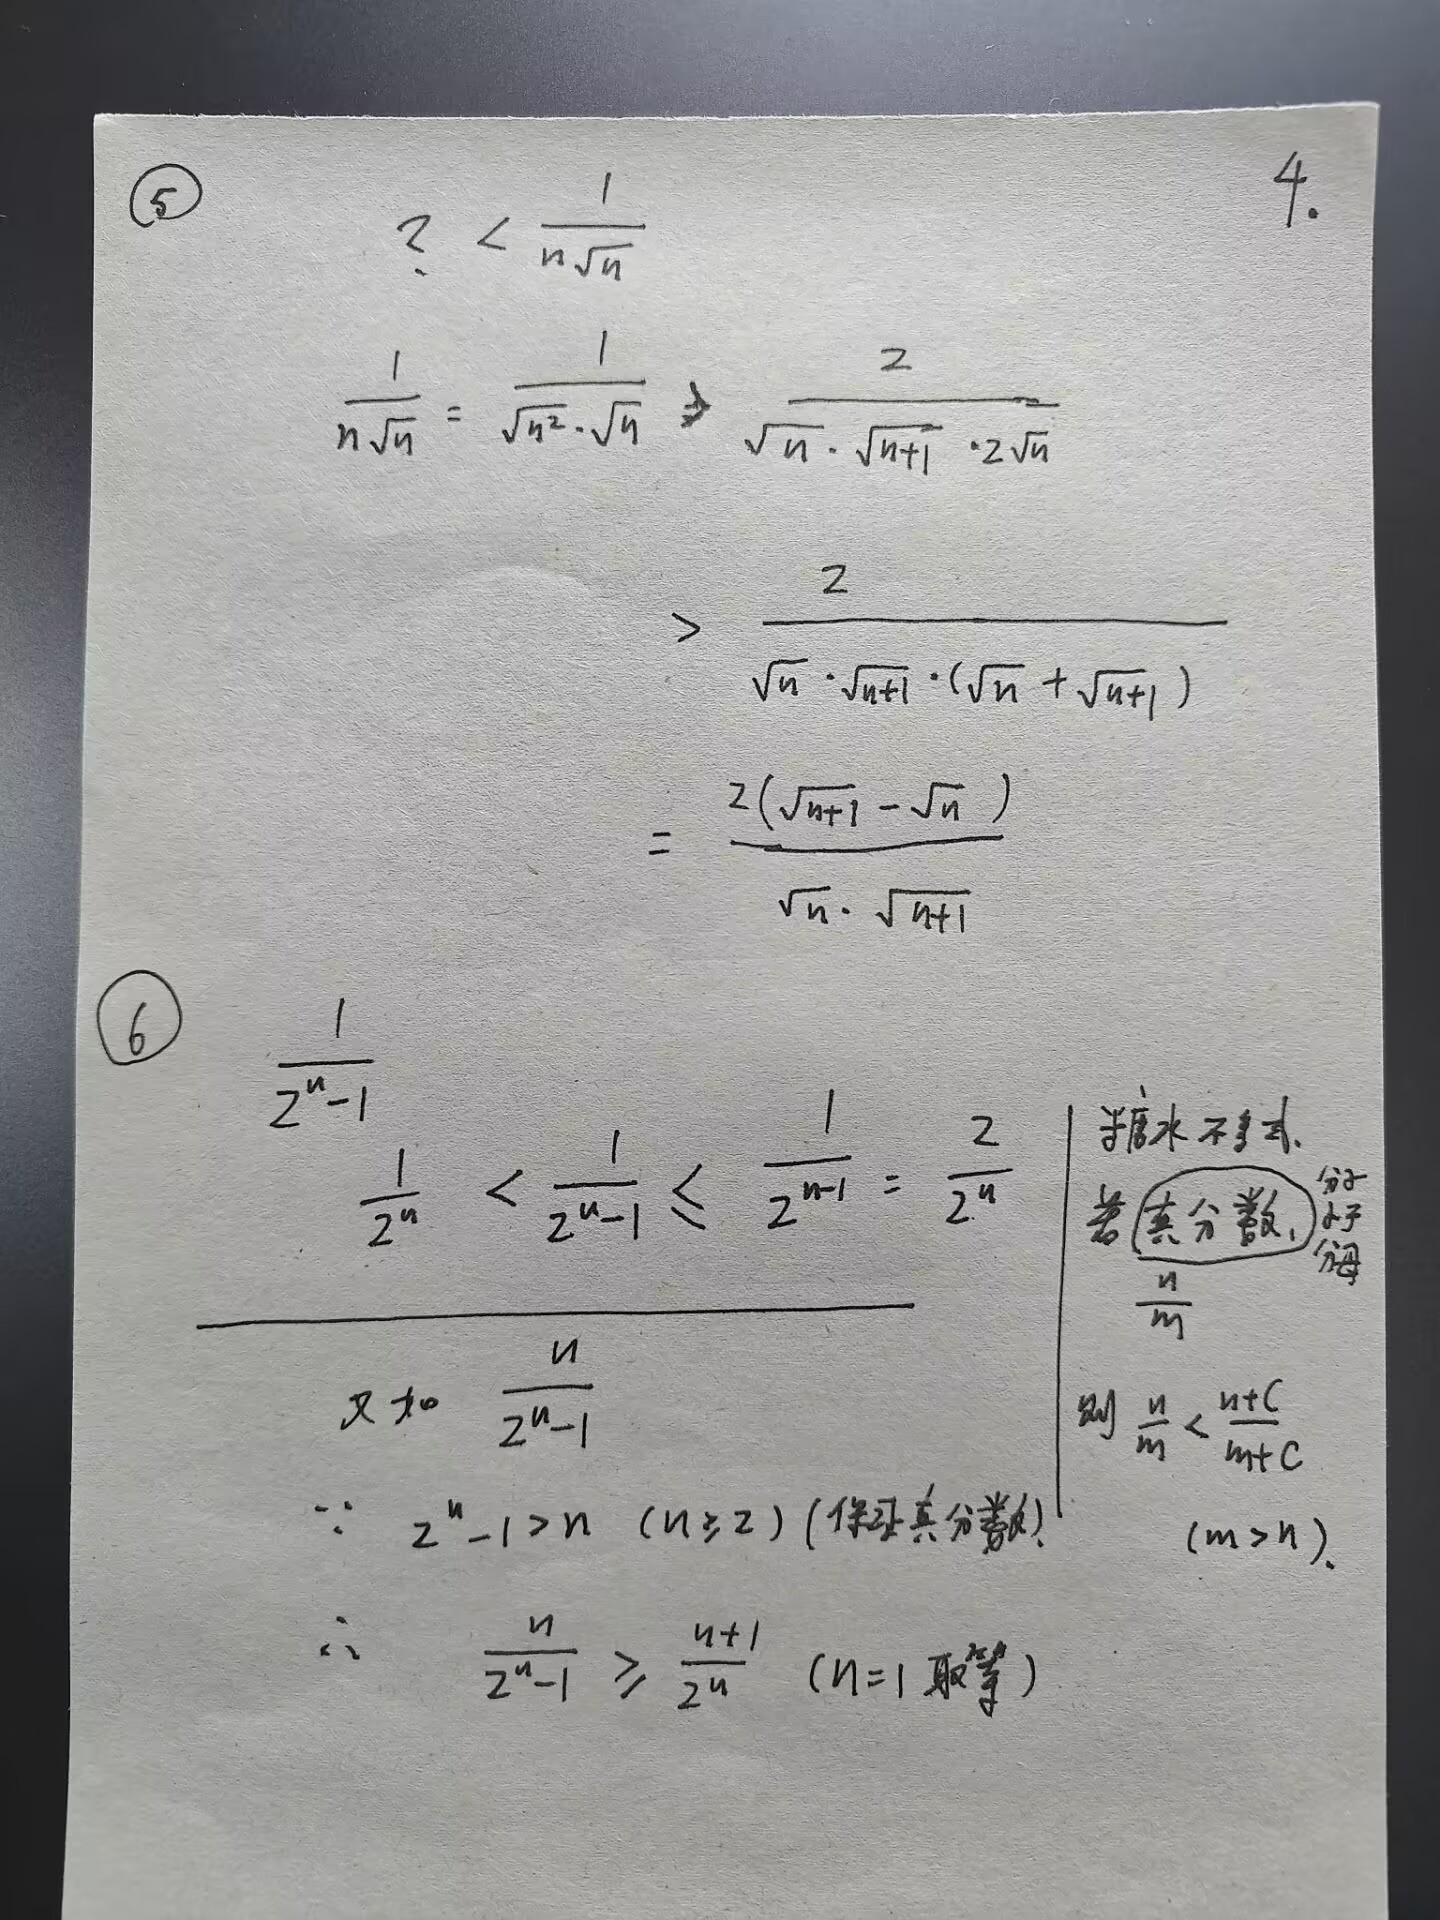 ⑤
4.
? < 1/(n√n)
1/(n√n) = 1/(√n²·√n) > 2/(√n·√(n+1)·2√n)
> 2/(√n·√(n+1)·(√n+√(n+1)))
= 2(√(n+1)-√n)/(√n·√(n+1))
⑥
1/(2ⁿ-1)
1/2ⁿ < 1/(2ⁿ-1) ≤ 1/2ⁿ⁻¹ = 2/2ⁿ
又如 n/(2ⁿ-1)
∵ 2ⁿ-1>n (n≥2) (保证真分数)
∴ n/(2ⁿ-1) ≥ (n+1)/2ⁿ (n=1 取等)
糖水不等式.
若真分数,
分子
小于
分母
n/m
则 n/m < (n+C)/(m+C)
(m>n).